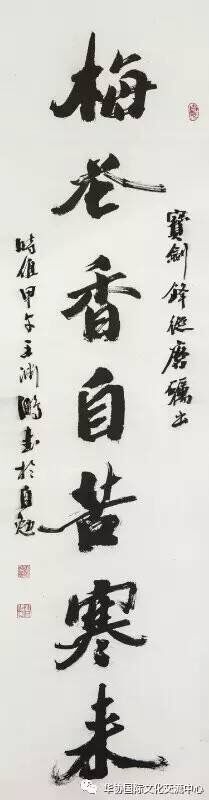 寶劍鋒從磨礪出
梅花香自苦寒来
時值甲午王渊鵬书於自勉
华协国际文化交流中心